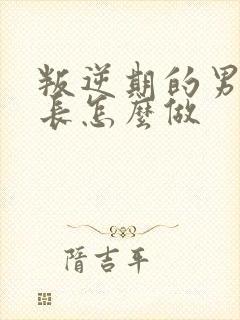 叛逆期的男
长怎麼做
隋吉平